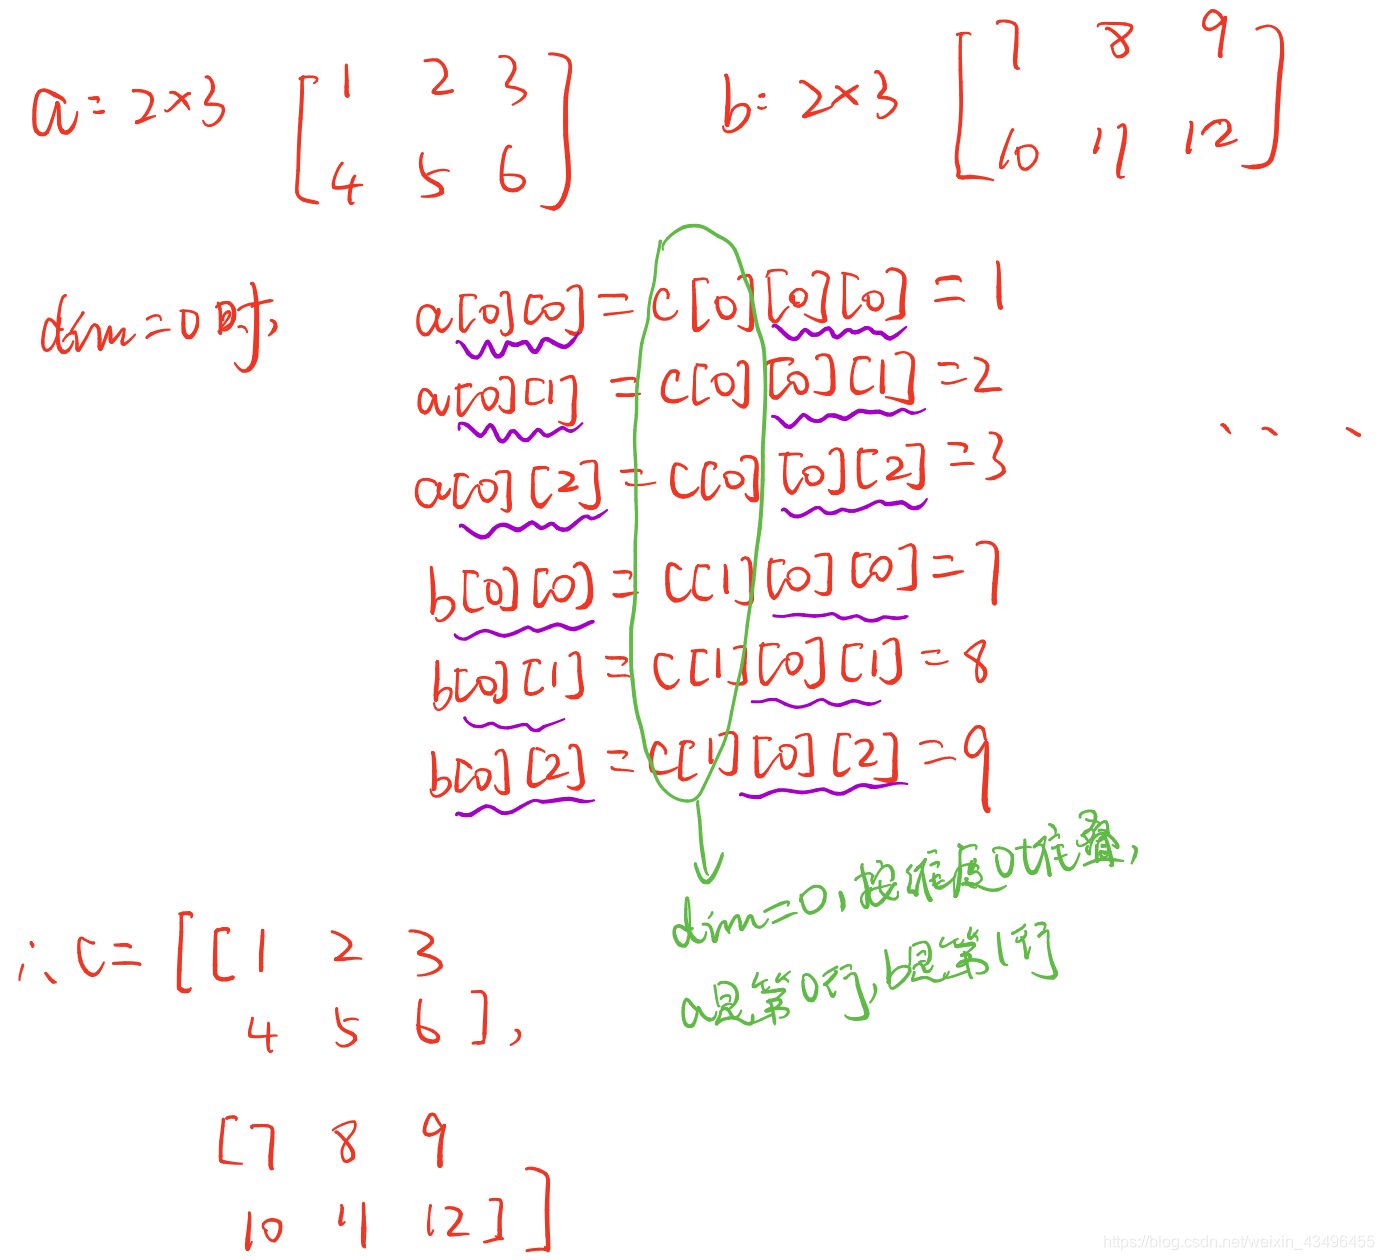 a = 2×3 [1 2 3
4 5 6]
b = 2×3 [7 8 9
10 11 12]
dim=0时,
a[0][0] = c[0][0][0] = 1
a[0][1] = c[0][0][1] = 2
a[0][2] = c[0][0][2] = 3
b[0][0] = c[1][0][0] = 7
b[0][1] = c[1][0][1] = 8
b[0][2] = c[1][0][2] = 9
...
dim=0,按维度0堆叠,
a是第0行,b是第1行
∴ c = [[1 2 3
4 5 6],
[7 8 9
10 11 12]]
https://blog.csdn.net/weixin_43496455